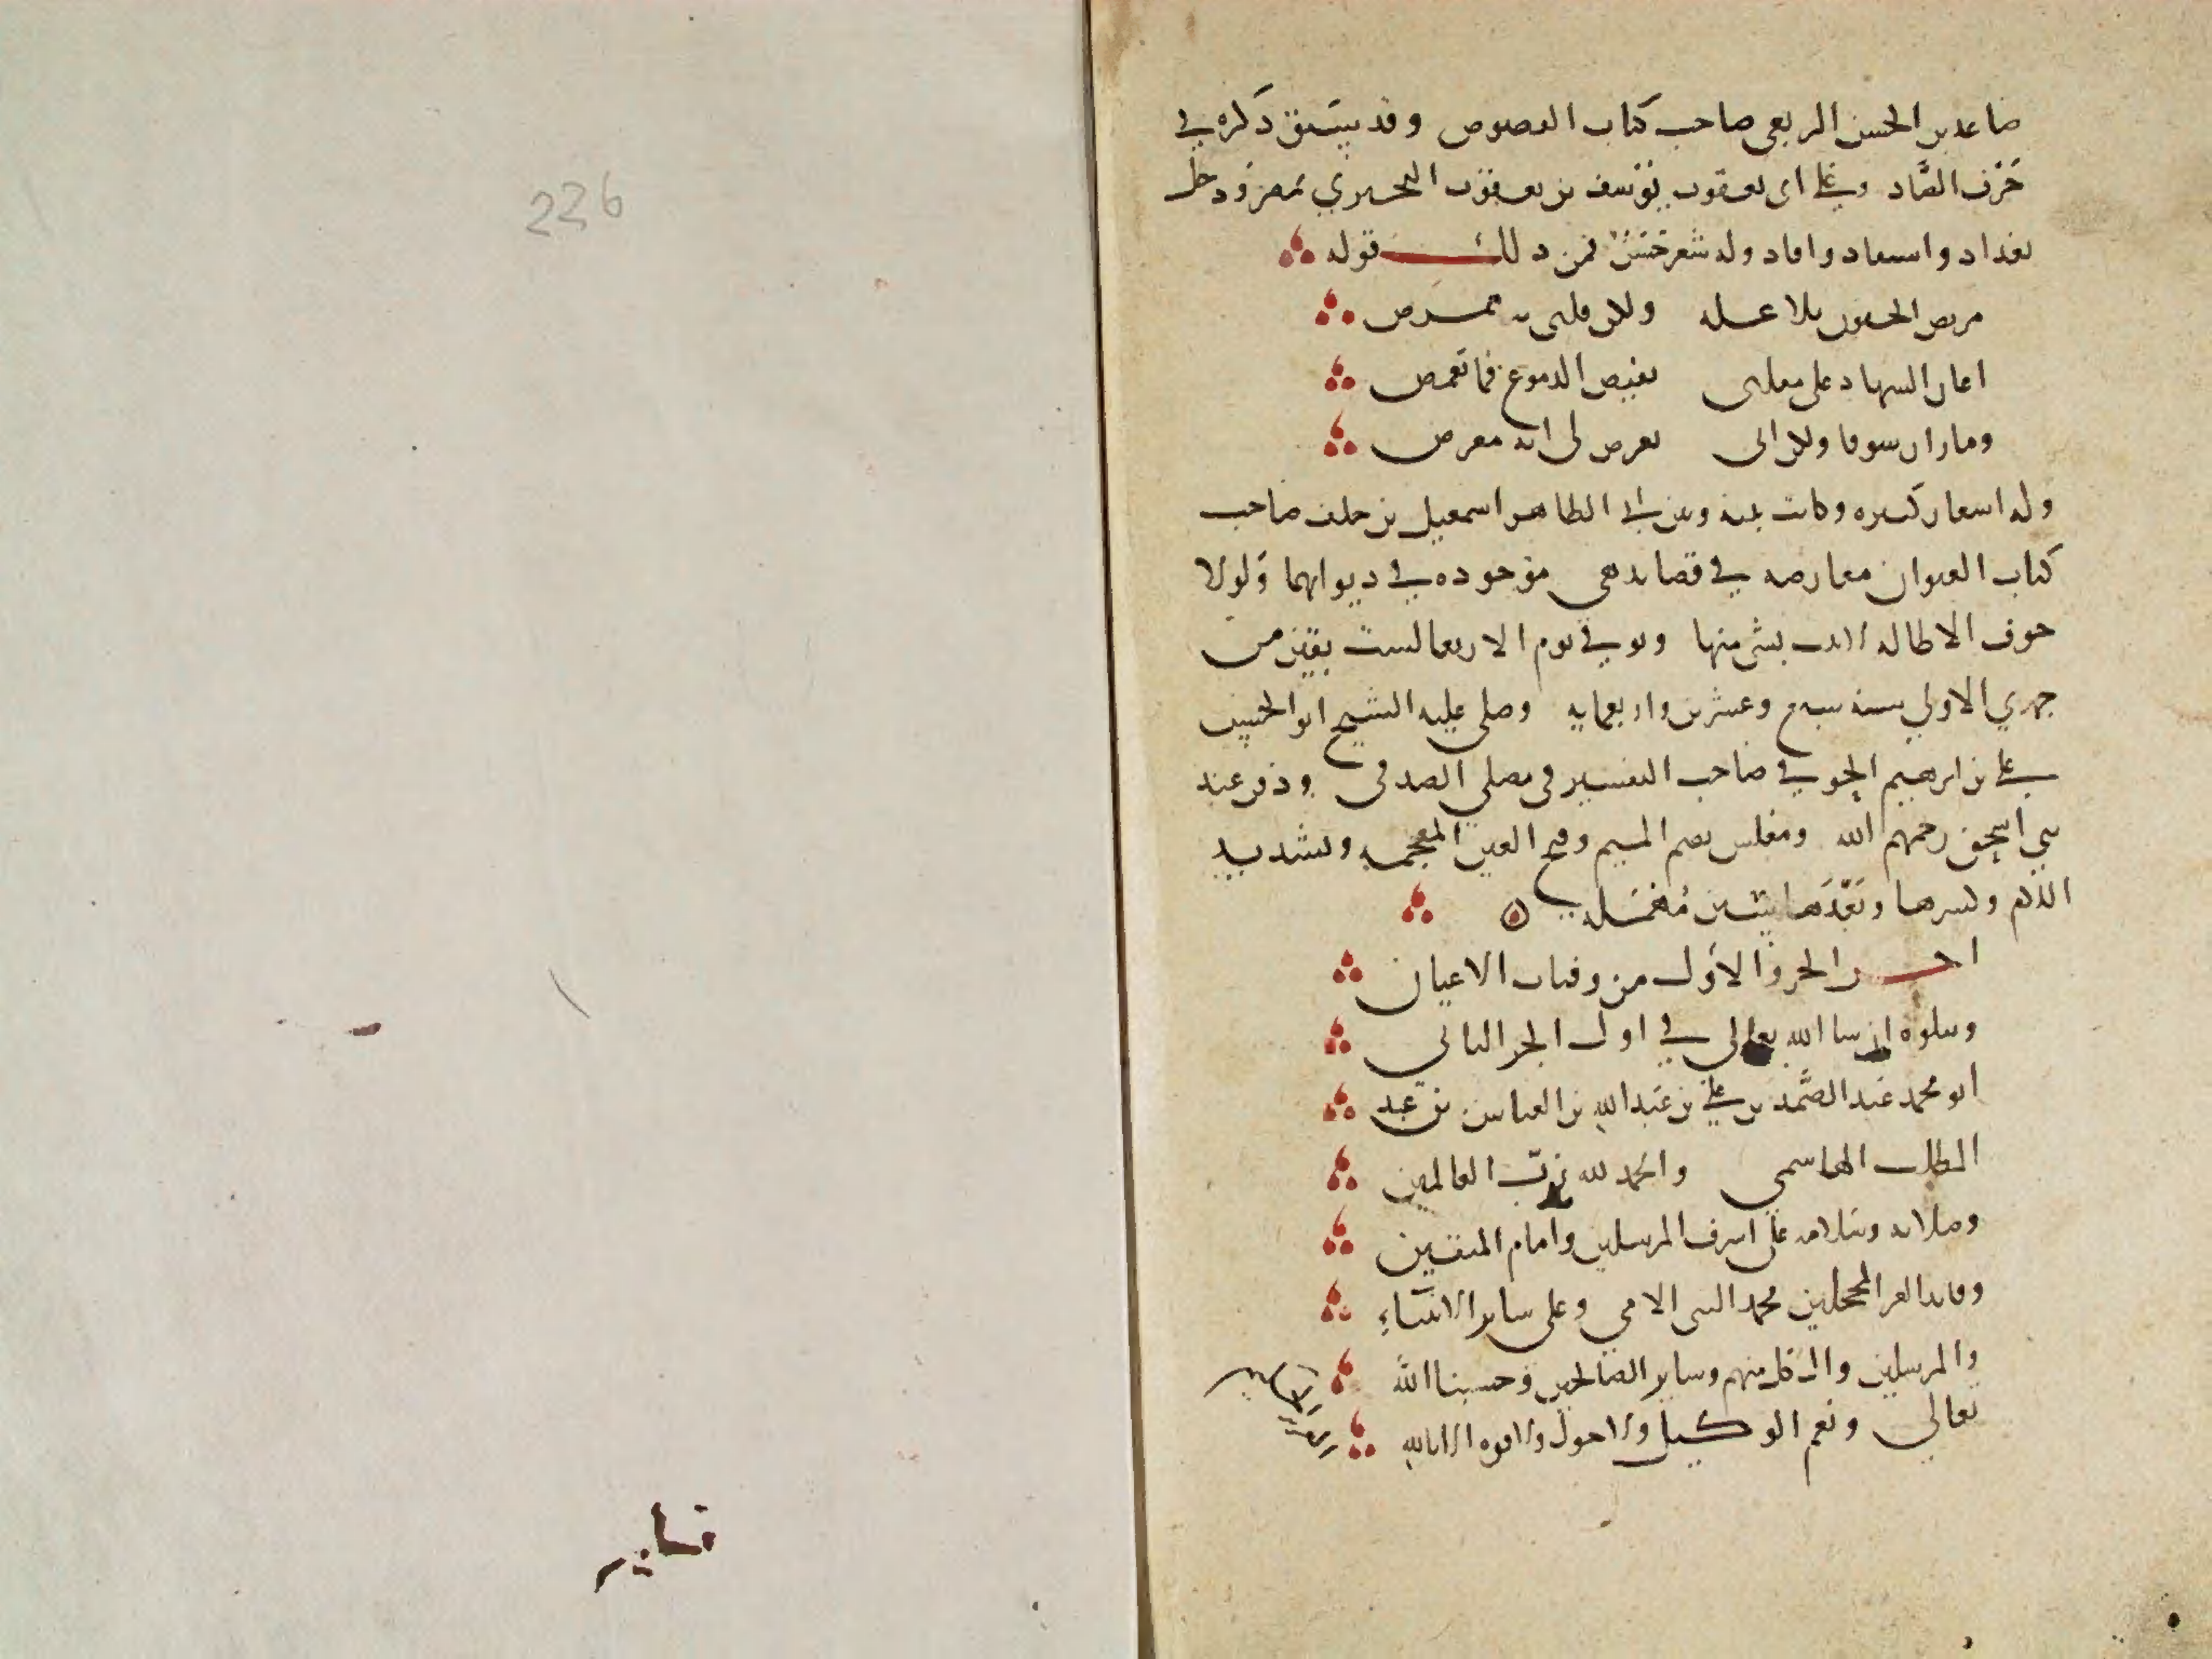 صاعد بن الحسن الربعي صاحب كتاب الفصوص وقد سبق ذكره في
حرف الصاد وعلى ابي يعقوب يوسف بن يعقوب النجيرمي بمصر ودخل
بغداد واستفاد وافاد وله شعر حسن فمن ذلك قوله
مريض الجفون بلا علة ولكن قلبي به ممرض
اعار السهاد على مقلتي بفيض الدموع فما تغمض
وما زار شوقا ولكن اتى يعرض لي انه معرض
وله اشعار كثيرة وكانت بينه وبين ابي الطاهر اسمعيل بن خلف صاحب
كتاب العنوان معارضة في قصايد هي موجودة في ديوانيهما ولولا
خوف الاطالة لاتيت بشي منها وتوفي يوم الاربعا لست بقين من
جمدي الاولي سنة سبع وعشرين واربعماية وصلى عليه الشيخ ابو الحسن
علي بن ابرهيم الحوفي صاحب التفسير في مصلى الصدفي ودفن عند
بني اسحق رحمهم الله ومغلس بضم الميم وفتح الغين المعجمة وتشديد
اللام وكسرها وبعدها سين مهملة
اخر الجزو الاول من وفيات الاعيان
ويتلوه ان شا الله تعالى في اول الجز الثاني
ابو محمد عبد الصمد بن علي بن عبد الله بن العباس بن عبد
المطلب الهاشمي والحمد لله رب العالمين
وصلاته وسلامه على اشرف المرسلين وامام المتقين
وقايد الغر المحجلين محمد النبي الامي وعلى ساير الانبياء
والمرسلين وال كل منهم وساير الصالحين وحسبنا الله
تعالي ونعم الوكيل ولا حول ولا قوة الا بالله
236